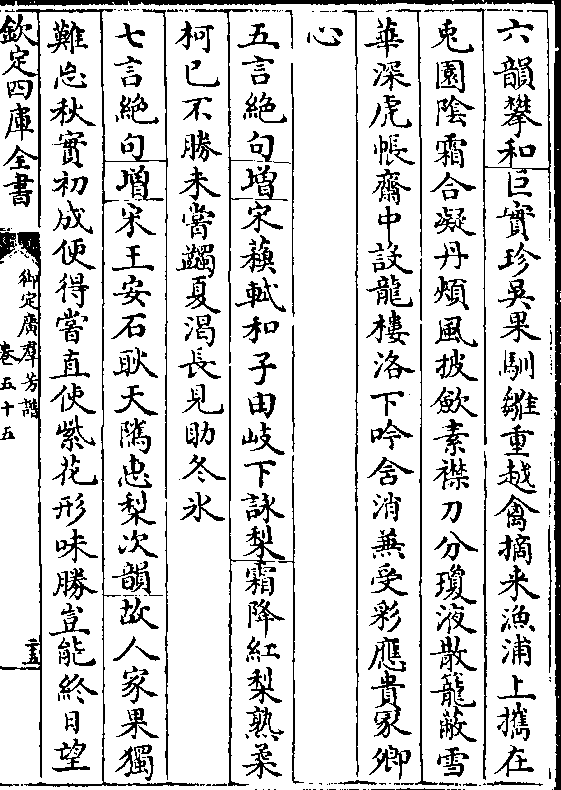 六韻攀和巨實珍吳果馴雛重越禽摘来漁浦上攜在
兎園陰霜合凝丹頰風披斂素襟刀分瓊液散籠蔽雪
華深虎帳齋中設龍樓洛下吟含消兼受彩應貴冢卿
心
五言絶句增宋蘓軾和子由岐下詠梨霜降紅梨熟柔
柯已不勝未嘗蠲夏渴長見助冬氷
七言絶句增宋王安石耿天隲恵梨次韻故人家果獨
難忘秋實初成便得嘗直使紫花形味勝豈能終日望
欽定四庫全書
御定廣羣芳譜
卷五十五